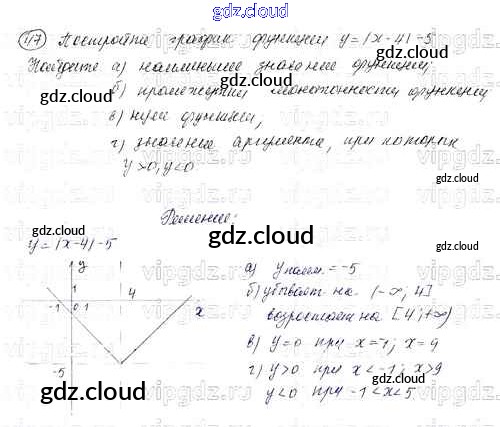 gdz.cloud
117 Постройте график функции y=|x-4|-5
Найдите а) наименьшее значение функции;
б) промежутки монотонности функции
в) нули функции,
г) значение аргумента, при которых
y>0, y<0
Решение:
y=|x-4|-5
y
1
4
-1 0 1 x
-5
а) y наим. = -5
б) убывает на (-∞; 4]
возрастает на [4; +∞)
в) y=0 при x=-1; x=9
г) y>0 при x<-1; x>9
y<0 при -1<x<5
gdz.cloud
gdz.cloud
gdz.cloud
gdz.cloud
gdz.cloud
gdz.cloud
gdz.cloud
gdz.cloud